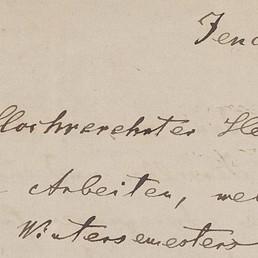 Jena
Hochverehrter He
Arbeiten, we
Wintersemesters